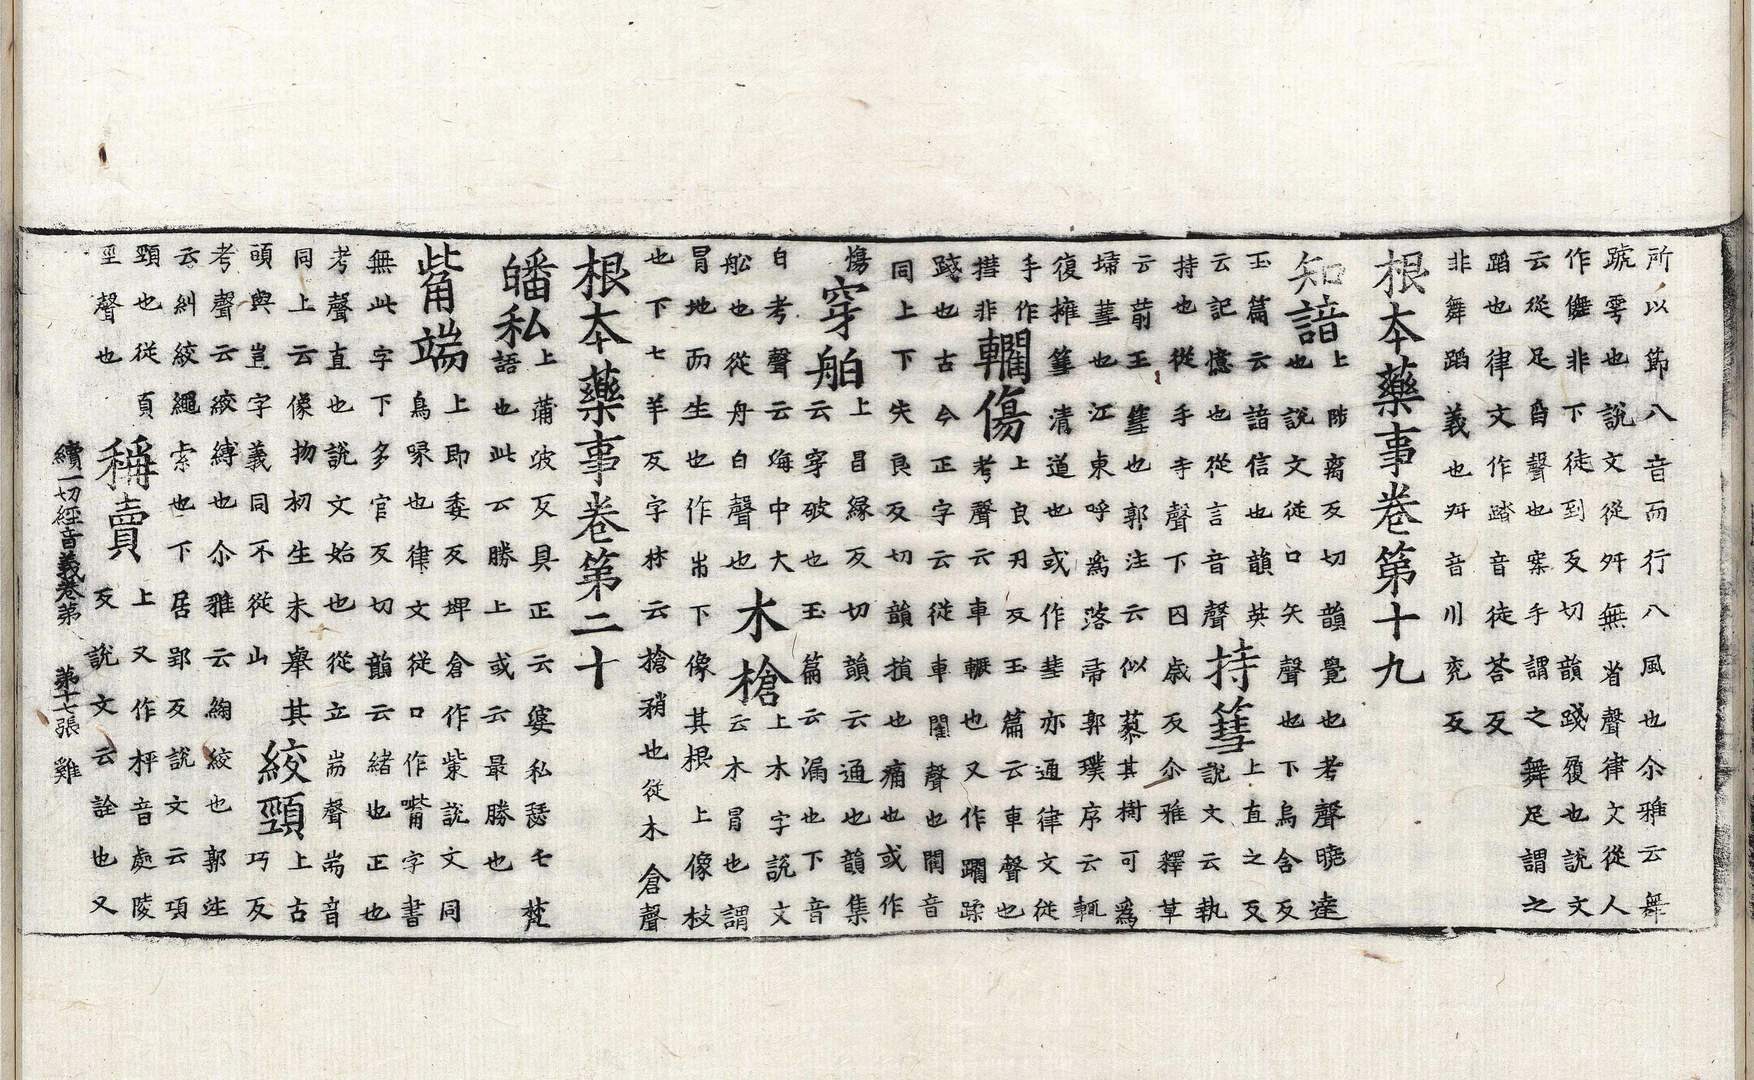 所以節八音而行八風也尒雅云舞
號雩也說文從舛無省聲律文從人
作儛非下徒到反切韻踐履也說文
云從足舀聲也案手謂之舞足謂之
蹈也律文作踏音徒荅反
非舞蹈義也舛音川兖反
根本藥事卷第十九
知諳
上陟离反切韻覺也考聲曉達
也說文從口矢聲也下烏含反
玉篇云諳信也韻英
云記憶也從言音聲
持篲
上直之反
說文云執
持也從手寺聲下囚歲反尒雅釋草
云葥王篲也郭注云似藜其樹可爲
埽篲也江東呼爲落帚郭璞序云輒
復擁篲清道也或作彗亦通律文從
手作
㨹非
轥傷
上良刃反玉篇云車聲也
考聲云車轢也又作躙蹂
踐也古今正字云從車閵聲也閵音
同上下失良反切韻損也痛也或作
慯
穿舶
上昌緣反切韻云通也韻集
云穿破也玉篇云漏也下音
白考聲云海中大
舩也從舟白聲也
木槍
上木字說文
云木冒也謂
冒地而生也作𣎳下像其根上像枝
也下七羊反字林云搶矟也從木倉聲
根本藥事卷第二十
皤私
上蒲波反具正云婆私瑟七梵
語也此云勝上或云最勝也
觜端
上即委反埤倉作㭰說文同
鳥喙也律文從口作嘴字書
無此字下多官反切韻云緒也正也
考聲直也說文始也從立耑聲耑音
同上云像物初生未舉其
頭與豈字義同不從山
絞頸
上古
巧反
考聲云絞縛也尒雅云絢絞也郭注
云糾絞繩索也下居郢反說文云項
頸也從頁
巠聲也
稱賣
上又作秤音處陵
反說文云詮也又
續一切經音義卷第 第十七張 雞